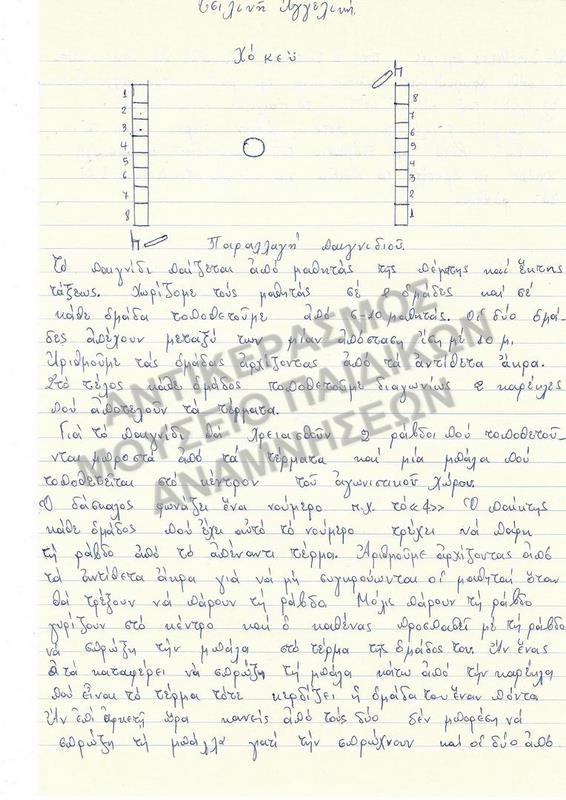 Τσιλινῆ Ἀγγελικῆ.
Χόκεϋ
1 8
2 7
3 6
4 5
5 4
6 3
7 2
8 1
Παραλλαγή παιγνιδιοῦ.
Τό παιγνίδι παίζεται ἀπό μαθητάς τῆς πέμπτης καί ἕκτης
τάξεως. Χωρίζομε τούς μαθητάς σέ 2 ὁμάδες καί σέ
κάθε ὁμάδα τοποθετοῦμε ἀπό 5-10 μαθητάς. Οἱ δύο ὁμά-
δες ἀπέχουν μεταξύ των μίαν ἀπόσταση ἴση μέ 10 μ.
Ἀριθμοῦμε τάς ὁμάδας ἀρχίζοντας ἀπό τά ἀντίθετα ἄκρα.
Στό τέλος κάθε ὁμάδος τοποθετοῦμε διαγωνίως 2 καρέκλες
πού ἀποτελοῦν τά τέρματα.
Γιά τό παιγνίδι θά χρειασθοῦν 2 ράβδοι πού τοποθετοῦ-
νται μπροστά ἀπό τά τέρματα καί μία μπάλα πού
τοποθετεῖται στό κέντρον τοῦ ἀγωνιστικοῦ χώρου.
Ὁ δάσκαλος φωνάζει ἕνα νούμερο π.χ. τό «4» Ὁ παίκτης
κάθε ὁμάδος πού ἔχει αὐτό τό νούμερο τρέχει νά πάρη
τή ράβδο ἀπό τό ἀπέναντι τέρμα. Ἀριθμοῦμε ἀρχίζοντας ἀπό
τά ἀντίθετα ἄκρα γιά νά μή συγκρούωνται οἱ μαθηταί ὅταν
θά τρέξουν νά πάρουν τή ράβδο. Μόλις πάρουν τή ράβδο
γυρίζουν στό κέντρο καί ὁ καθένας προσπαθεῖ μέ τή ράβδο
νά σπρώξη τήν μπάλα στό τέρμα τῆς ὁμάδος του. Ἄν ἕνας
τά καταφέρει νά σπρώξη τή μπάλα κάτω ἀπό τήν καρέκλα
πού εἶναι τό τέρμα τότε κερδίζει ἡ ὁμάδα του ἕναν πόντο
Ἄν ἐπί ἀρκετή ὥρα κανείς ἀπό τούς δύο δέν μπορέση νά
σπρώξη τή μπάλλα γιατί τήν σπρώχνουν καί οἱ δύο ἀπό
ΑΝΤΙΚΕΡΑΣΜΟΣ
ΜΟΥΣΕΙΟ ΠΑΙΔΙΚΩΝ
ΑΝΑΜΝΗΣΕΩΝ